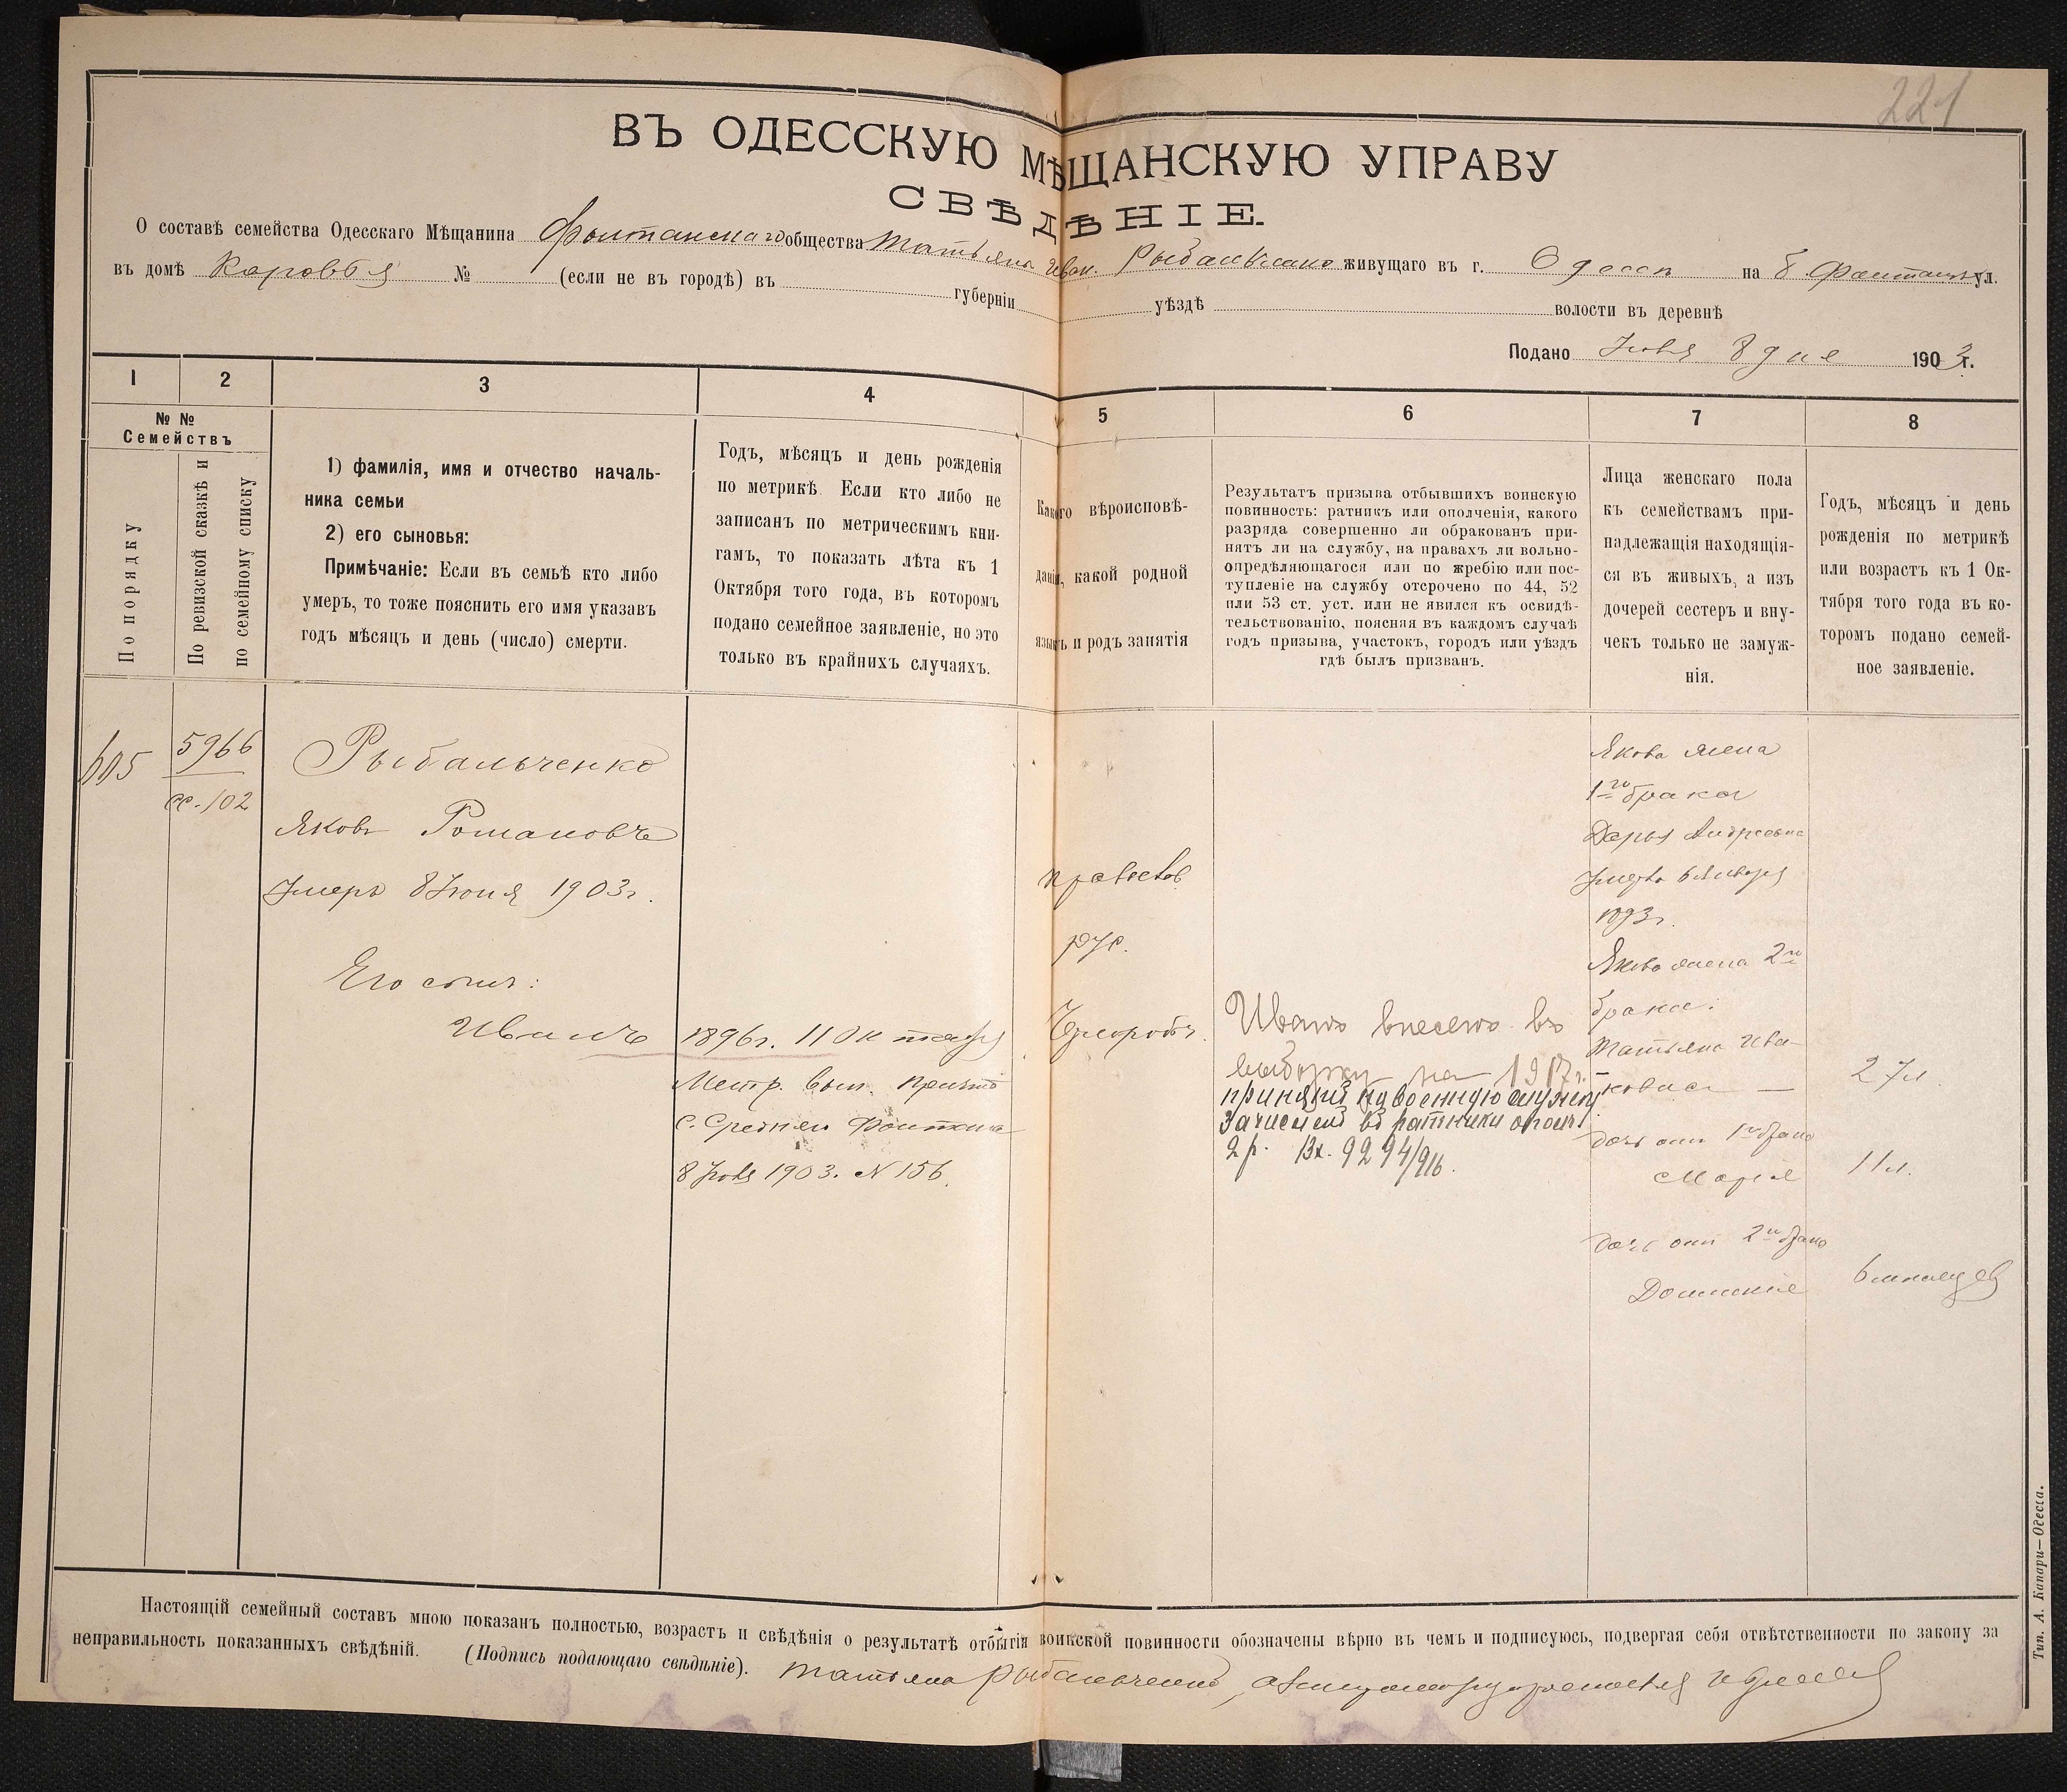 221
ВЪ ОДЕССКУЮ МѢЩАНСКУЮ УПРАВУ
СВѢДѢНІЕ.
О составѣ семейства Одесскаго Мѣщанина Фонтанскаго общества Татьяна Иван. Рыбальченко живущаго въ г. Одессѣ на Б. Фонтанѣ ул.
въ домѣ № (если не въ городѣ) въ губерніи уѣздѣ волости въ деревнѣ
Подано 8 дня 1903 г.
1 2 3 4 5 6 7 8
№ №
Семействъ
По порядку
По ревизской сказкѣ и
по семейному списку
1) фамилія, имя и отчество началь-
ника семьи
2) его сыновья:
Примѣчаніе: Если въ семьѣ кто либо
умеръ, то тоже пояснить его имя указавъ
годъ мѣсяцъ и день (число) смерти.
Годъ, мѣсяцъ и день рожденія
по метрикѣ Если кто либо не
записанъ по метрическимъ кни-
гамъ, то показать лѣта къ 1
Октября того года, въ которомъ
подано семейное заявленіе, но это
только въ крайнихъ случаяхъ.
Какого вѣроисповѣ-
данія, какой родной
языкъ и родъ занятія
Результатъ призыва отбывшихъ воинскую
повинность: ратникъ или ополченія, какого
разряда совершенно ли обракованъ при-
нятъ ли на службу, на правахъ ли вольно-
опредѣляющагося или по жребію или пос-
тупленіе на службу отсрочено по 44, 52
или 53 ст. уст. или не явился къ освидѣ-
тельствованію, поясняя въ каждомъ случаѣ
годъ призыва, участокъ, городъ или уѣздъ
гдѣ былъ призванъ.
Лица женскаго пола
къ семействамъ при-
надлежащія находящія-
ся въ живыхъ, а изъ
дочерей сестеръ и вну-
чекъ только не замуж-
нія.
Годъ, мѣсяцъ и день
рожденія по метрикѣ
или возрастъ къ 1 Ок-
тября того года въ ко-
торомъ подано семей-
ное заявленіе.
605
5966
сс. 102
Рыбальченко
Яковъ Романовъ
Умеръ 8 Іюня 1903 г.
Его сынъ:
Иванъ
1896 г. 11 Октября
Метр. вып.
с. Средняго Фонтана
8 1903. № 156.
православ.
рус.
Чернораб.
Иванъ внесенъ въ
выборку на 1917 г.
принятый на военную службу
Зачислен въ ратники ополч.
2 р. Вх. 9294/916.
Якова жена
1го брака
Дарья Андреевна
Умерла 6 Января
1893 г.
Якова жена 2го
брака:
Татьяна Ива-
новна —
27 л.
дочь отъ 1го брака
Марія
11 л.
дочь отъ 2го брака
6 мѣсяцев
Настоящій семейный составъ мною показанъ полностью, возрастъ и свѣдѣнія о результатѣ отбытія воинской повинности обозначены вѣрно въ чемъ и подписуюсь, подвергая себя отвѣтственности по закону за
неправильность показанныхъ свѣдѣній. (Подпись подающаго свѣдѣніе). Татьяна Рыбальченко,
Тип. А. Капари—Одесса.